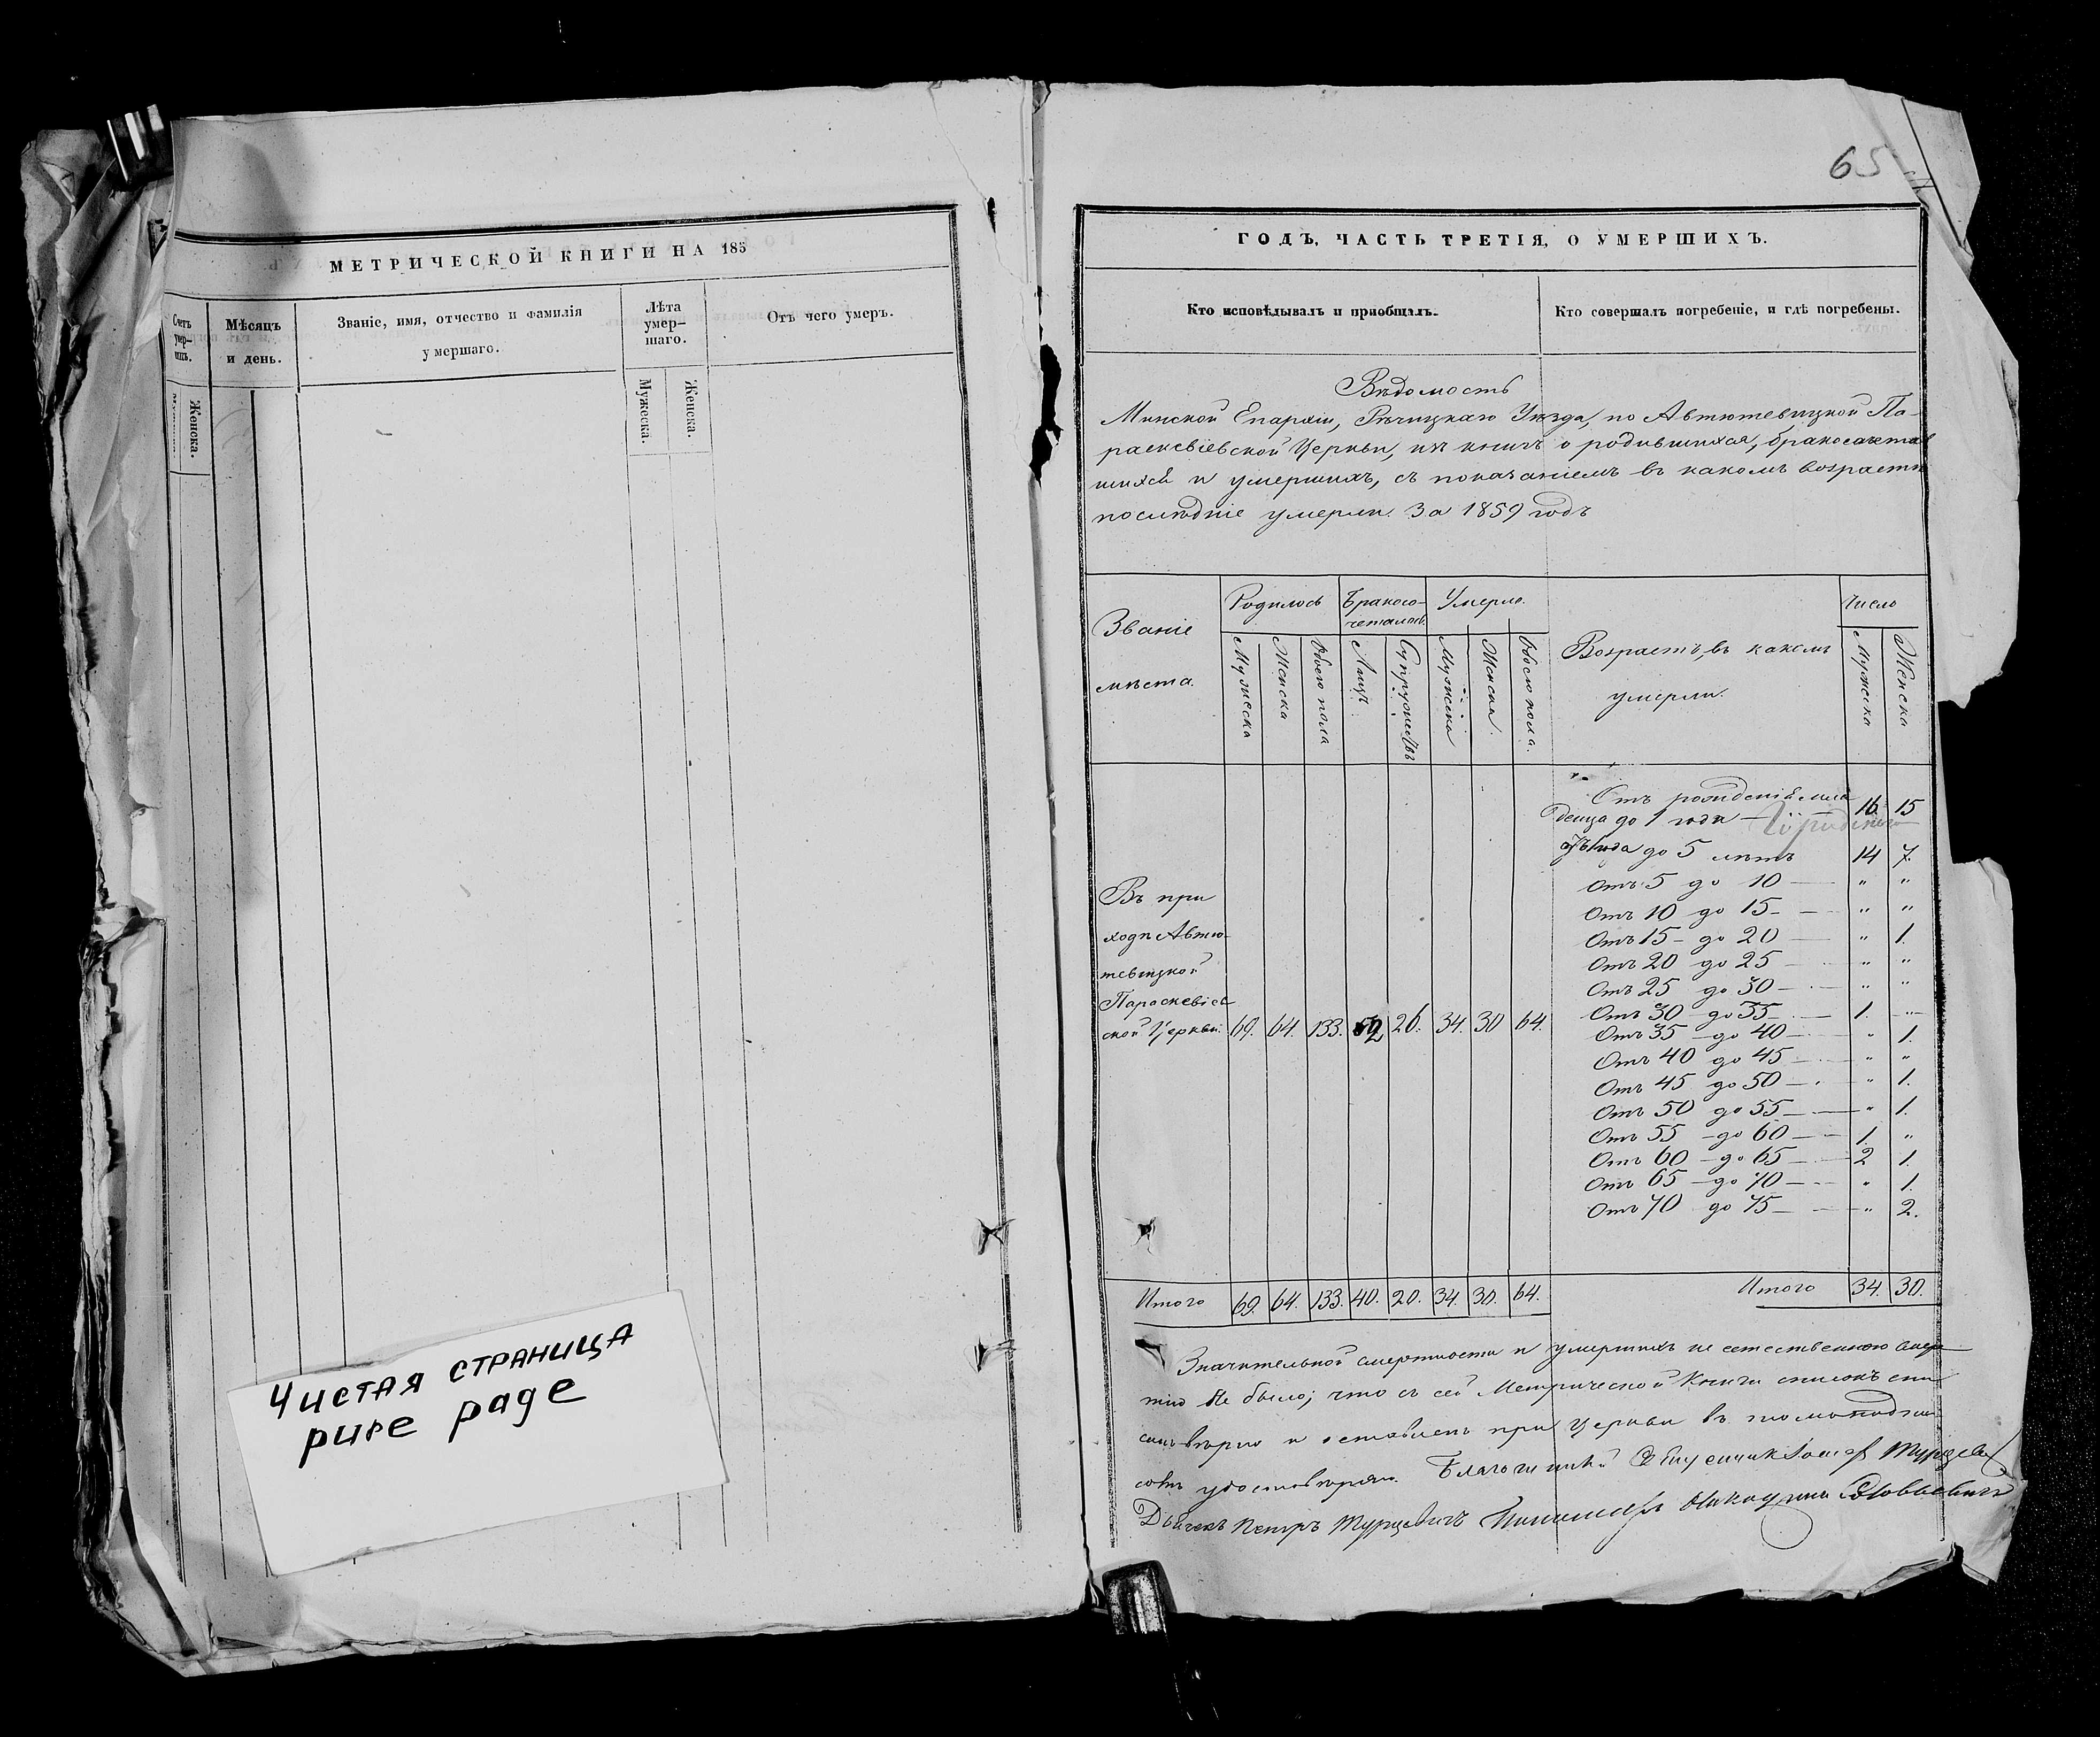 МЕТРИЧЕСКОЙ КНИГИ НА 185
Счетъ умер-шихъ.
Мѣсяцъ и день.
Званіе, имя, отчество и фамилія умершаго.
Лѣта умер-шаго.
Отъ чего умеръ.
Женска.
Мужеска.
Женска.
Чистая страница
pure page
65
ГОДЪ, ЧАСТЬ ТРЕТІЯ, О УМЕРШИХЪ.
Кто исповѣдывалъ и приобщалъ.
Кто совершалъ погребеніе, и гдѣ погребены.
Вѣдомость
Минской Епархіи, Рѣчицкаго Уѣзда, по Автютевицкой Па-
раскевіевской Церкви, изъ книгъ о родившихся, бракосочетав
шихся и умершихъ, съ показаніемъ въ какомъ возрастѣ
послѣдніе умерли. За 1859 годъ
Званіе мѣста.
Родилось
Бракосо-четались
Умерло.
Возрастъ, въ какомъ умерли.
Число
Мужеска
Женска
Обоего пола
Лицъ
Супружествъ
Мужеска
Женска.
Обоего пола.
Мужеска
Женска
Отъ рожденія мла
денца до 1 года 16. 15
отъ 1 года до 5 лѣтъ 14 7.
Отъ 5 до 10 — " "
Отъ 10 до 15 — " "
Отъ 15 до 20 — " 1.
Отъ 20 до 25 — " "
Отъ 25 до 30 — " "
Отъ 30 до 35 — 1. "
Отъ 35 до 40 — " 1.
Отъ 40 до 45 — " "
Отъ 45 до 50 — " 1.
Отъ 50 до 55 — " 1.
Отъ 55 до 60 — 1. "
Отъ 60 до 65 — 2 1.
Отъ 65 до 70 — " 1.
Отъ 70 до 75 — " 2.
Въ при
ходѣ Автю-
тевицкой
Параскевіев
ской Церкви. 69. 64. 133. 52 26. 34. 30 64.
Итого 69. 64. 133. 40. 20. 34. 30. 64.
Итого 34. 30.
Значительной смертности и умершихъ не естественною смер
тію не было; что съ сей Метрической Книги списокъ спи
санъ вѣрно и оставленъ при Церкви въ томъ подпи
сомъ удостовѣряю. Благочинный
Дьячекъ Петръ Турцевичъ Пономарь